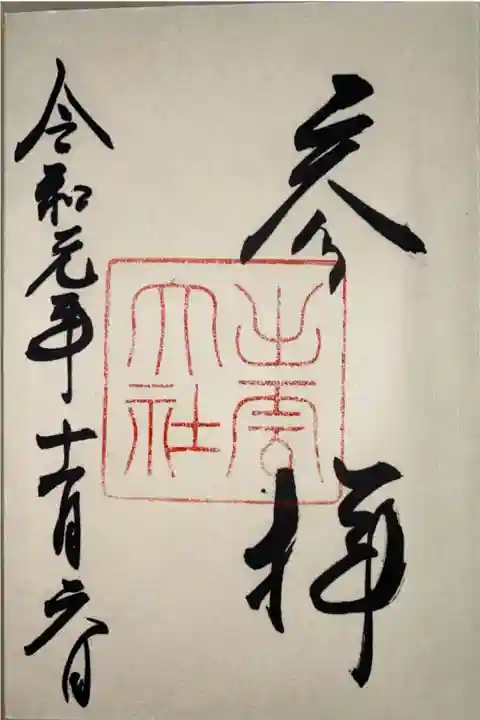 参拝
出雲
大社
令和元年十一月六日